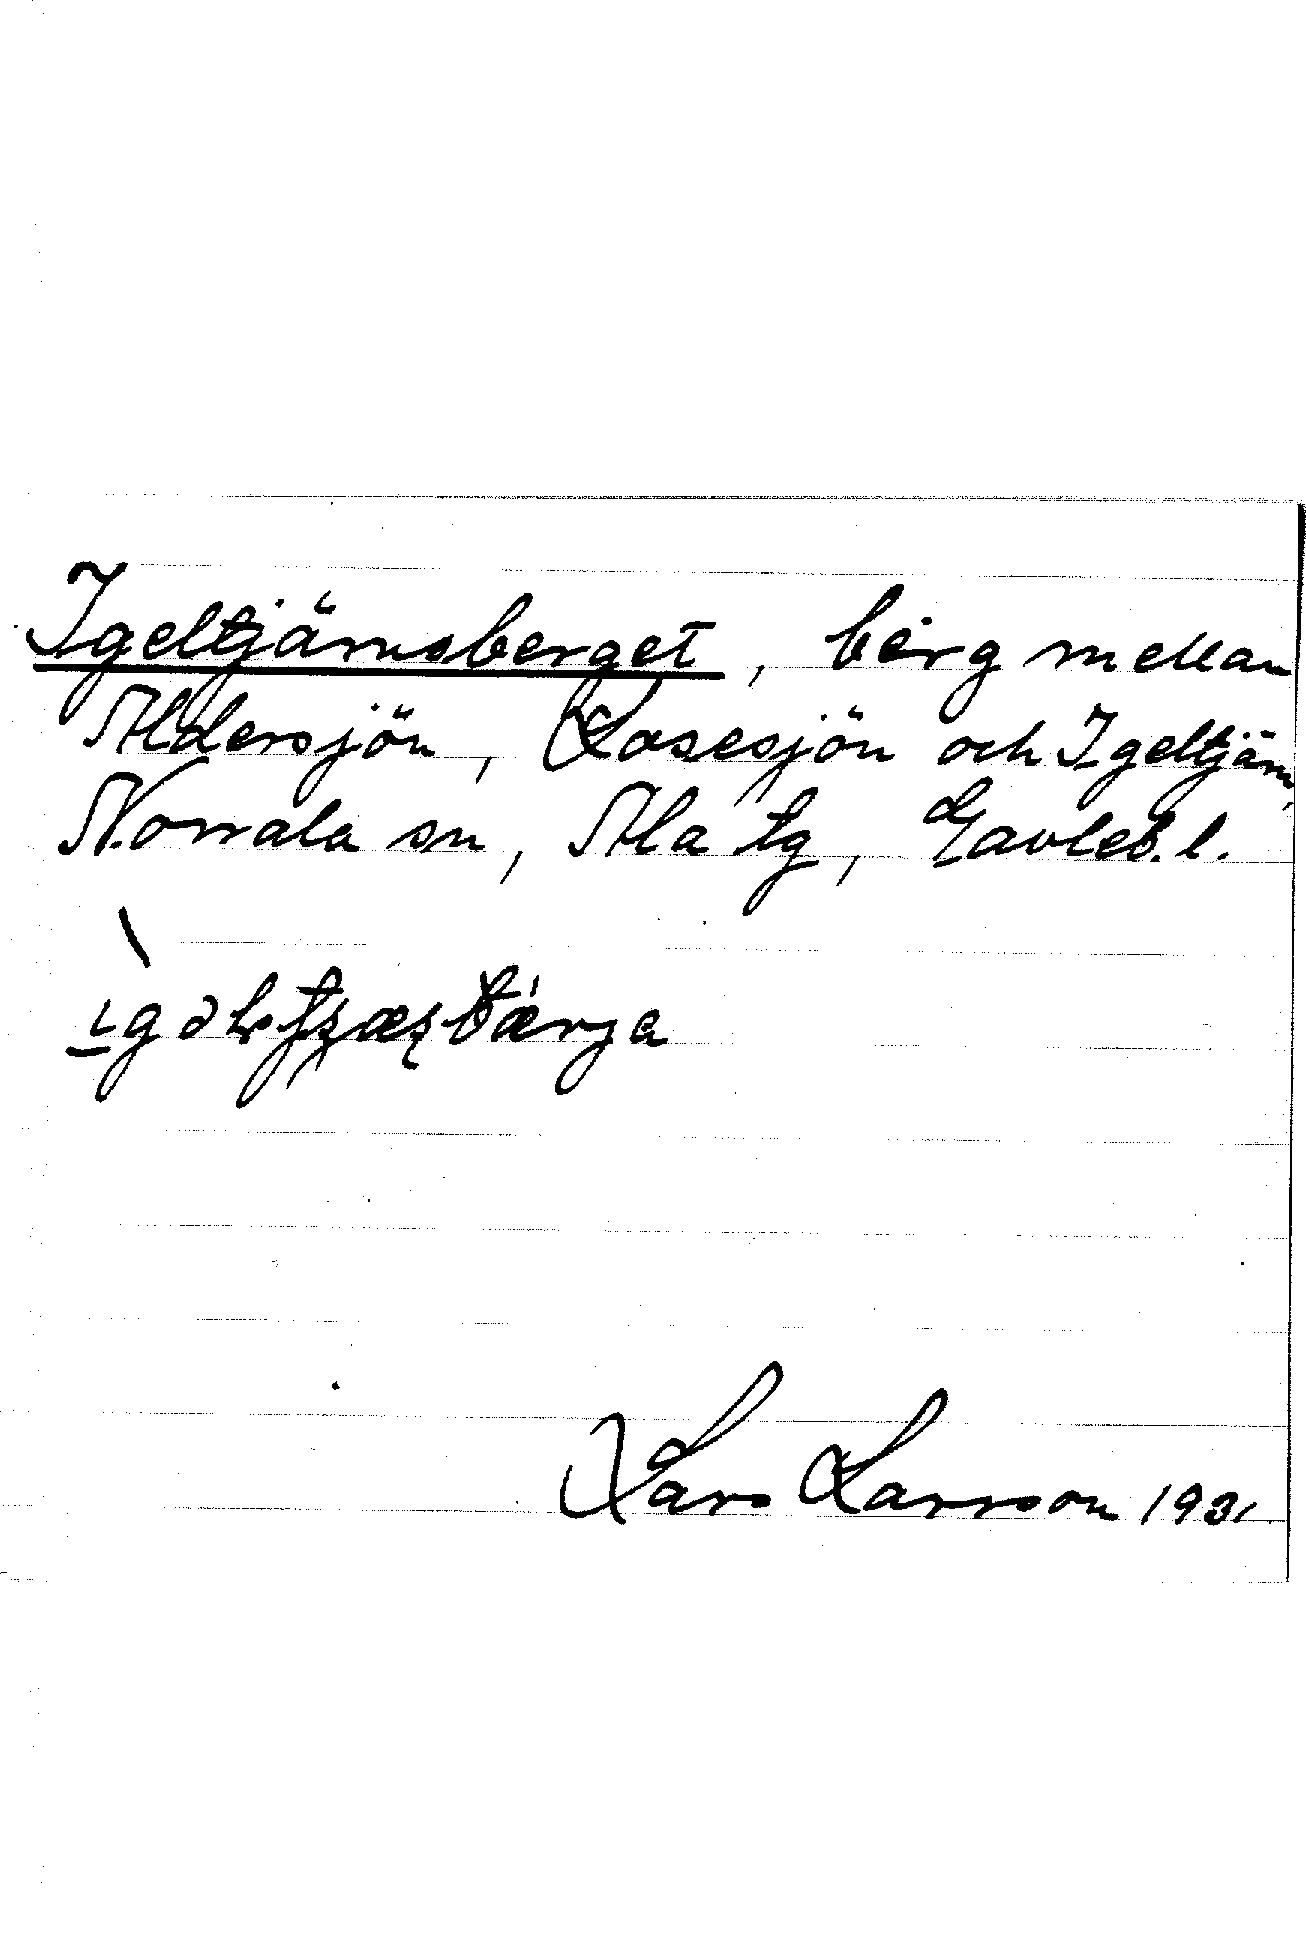 Igeltjärnsberget, berg mellan
Aldersjön, Lasesjön och Igeltjärn,
Norrala sn, Ala tg, Gävleb. l.
Lars Larsson 1931